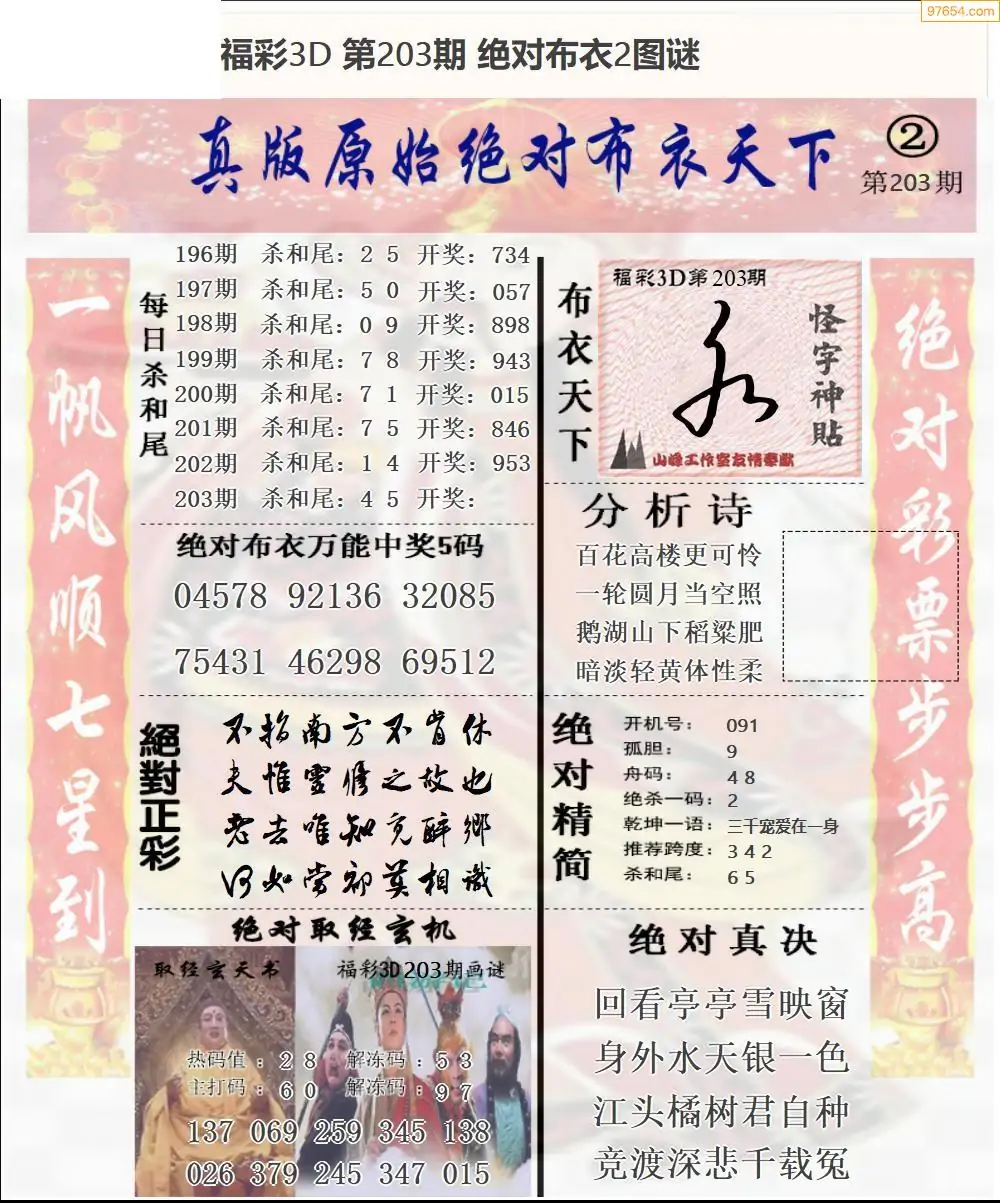 97654.com
福彩3D 第203期 绝对布衣2图谜
真版原始绝对布衣天下
②
第203期
一帆风顺七星到
每日杀和尾
196期 杀和尾：2 5 开奖：734
197期 杀和尾：5 0 开奖：057
198期 杀和尾：0 9 开奖：898
199期 杀和尾：7 8 开奖：943
200期 杀和尾：7 1 开奖：015
201期 杀和尾：7 5 开奖：846
202期 杀和尾：1 4 开奖：953
203期 杀和尾：4 5 开奖：
绝对布衣万能中奖5码
04578 92136 32085
75431 46298 69512
絕對正彩
不指南方不肯休
夫惟灵修之故也
老去唯知充醉乡
何如尝初莫相识
绝对取经玄机
取经玄天书
福彩3D203期画谜
热码值：2 8 解冻码：5 3
主打码：6 0 解冻码：9 7
137 069 259 345 138
026 379 245 347 015
布衣天下
福彩3D第203期
永
怪字神貼
山峰工作室友情奉献
分析诗
百花高楼更可怜
一轮圆月当空照
鹅湖山下稻粱肥
暗淡轻黄体性柔
绝对精简
开机号： 091
孤胆： 9
舟码： 4 8
绝杀一码：2
乾坤一语：三千宠爱在一身
推荐跨度：3 4 2
杀和尾： 6 5
绝对真决
回看亭亭雪映窗
身外水天银一色
江头橘树君自种
竞渡深悲千载冤
绝对彩票步步高